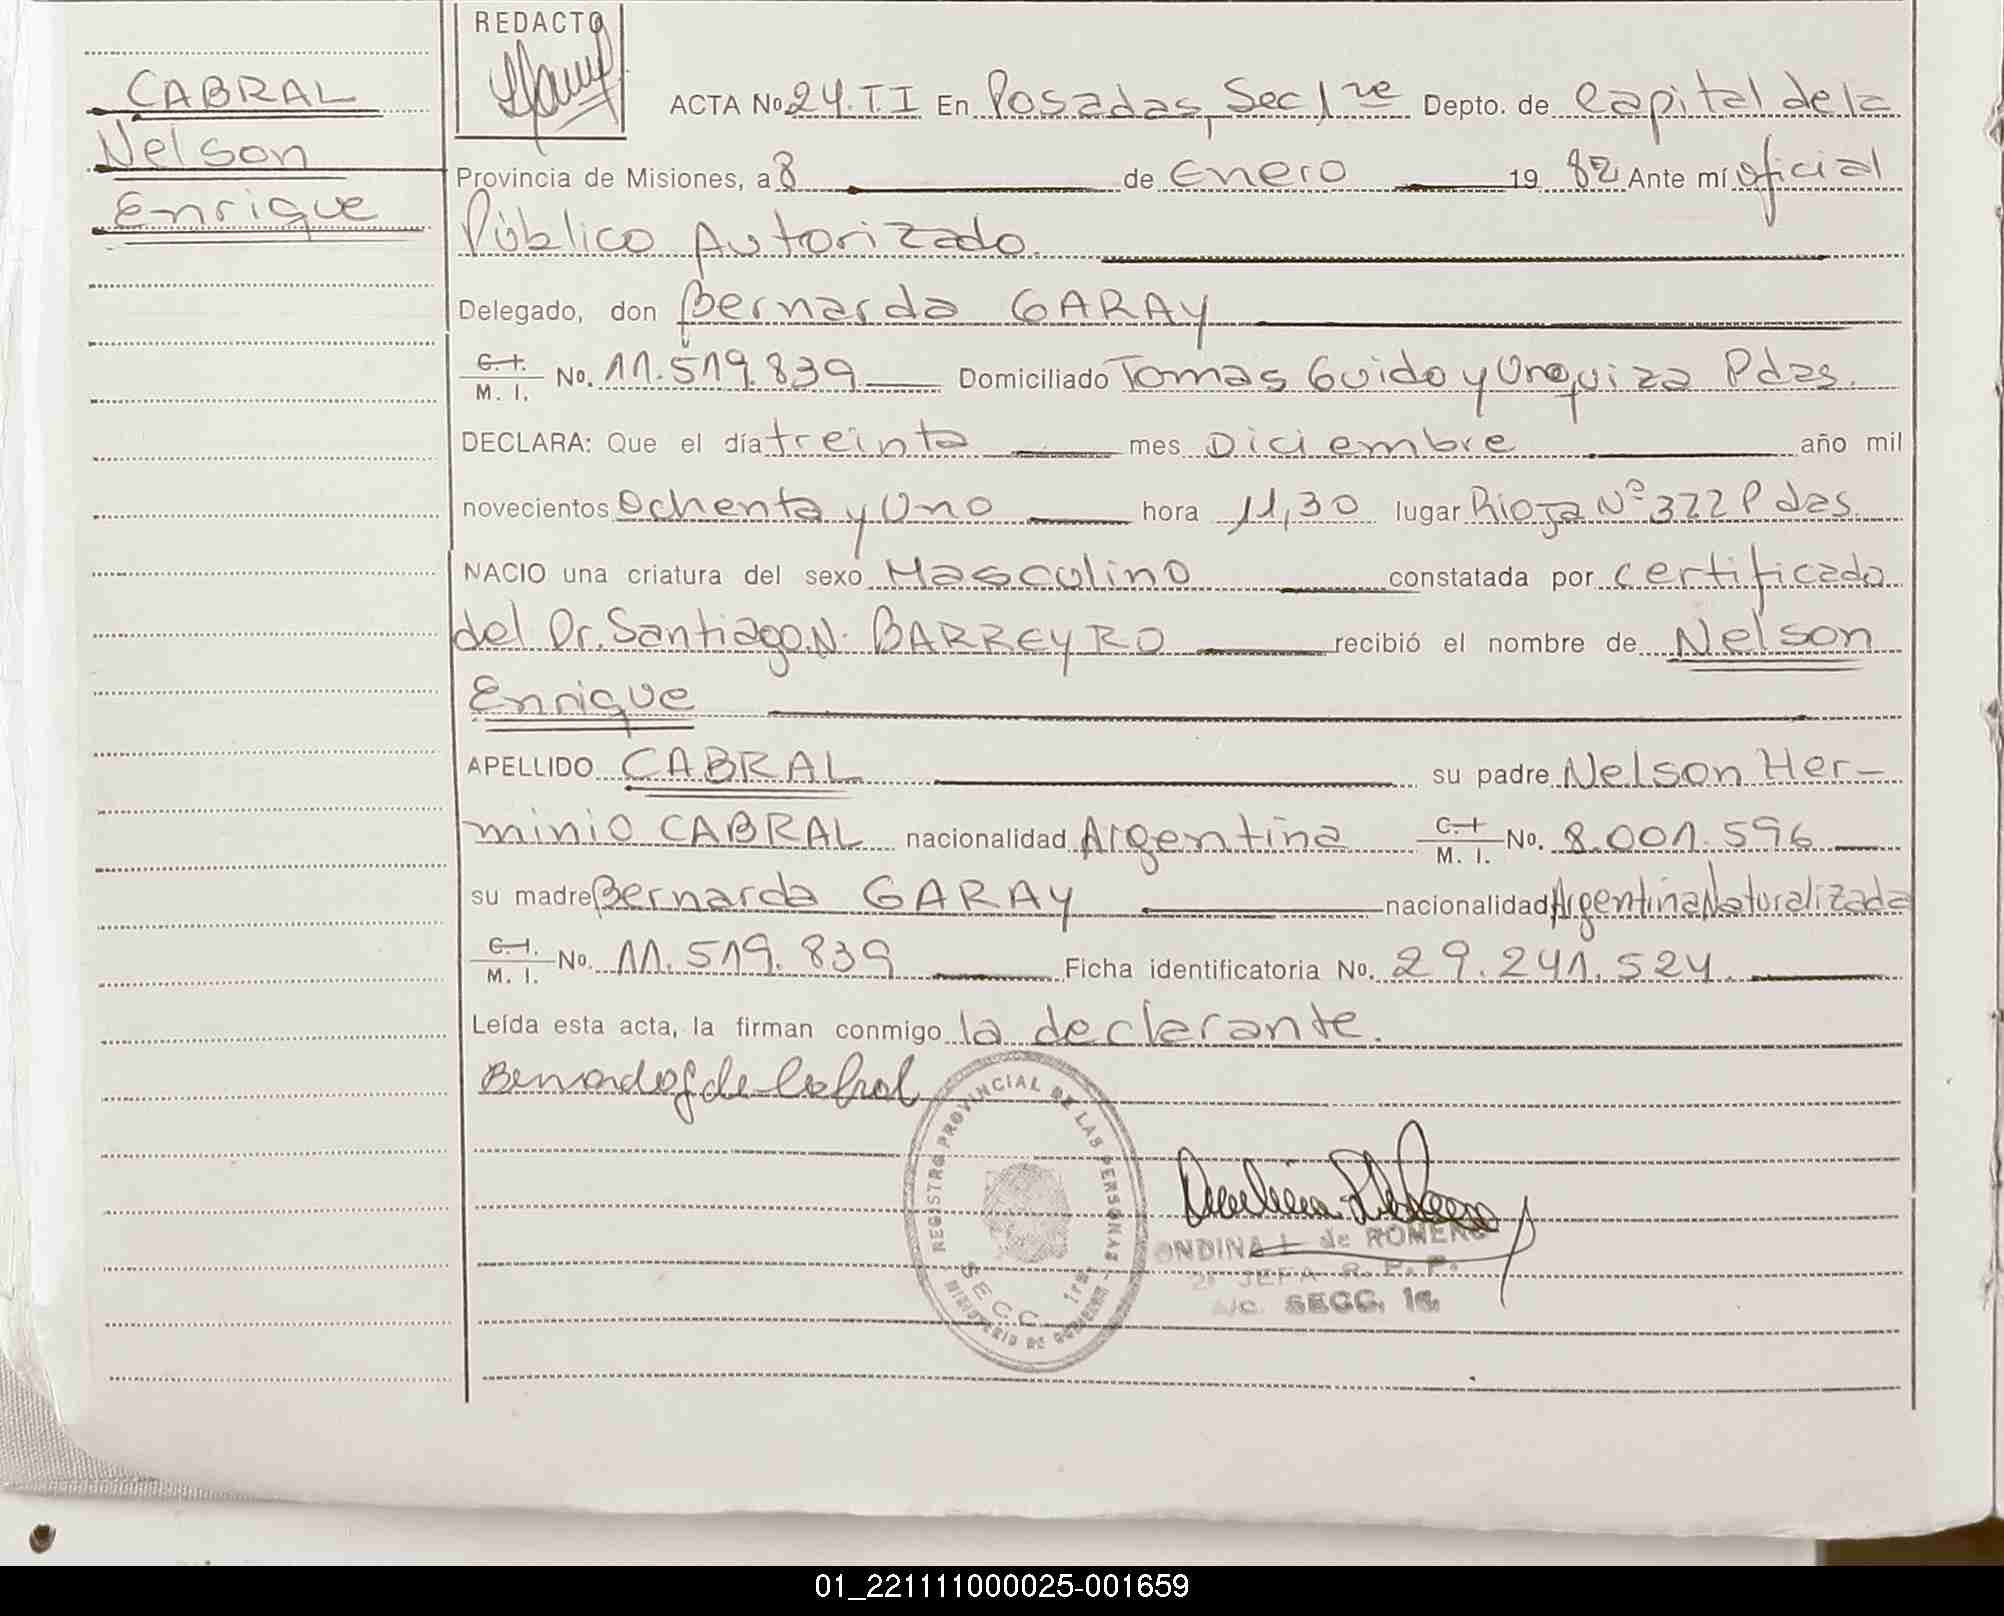 REDACTO
CABRAL
Nelson
Enrique
ACTA No 24.T.I En Posadas, Sec 1re Depto. de Capital de la
Provincia de Misiones, a 8 de Enero 19 82 Ante mí oficial
Público Autorizado.
Delegado, don Bernarda GARAY
C.I. M. I. No. 11.519.839 Domiciliado Tomas Guido y Urquiza Pdas.
DECLARA: Que el día treinta mes Diciembre año mil
novecientos Ochenta y Uno hora 11,30 lugar Rioja Nº 322 Pdas.
NACIO una criatura del sexo Masculino constatada por certificado
del Dr. Santiago N. BARREYRO recibió el nombre de Nelson
Enrique
APELLIDO CABRAL su padre Nelson Her-
minio CABRAL nacionalidad Argentina C.I M. I. No. 8.001.596
su madre Bernarda GARAY nacionalidad Argentina Naturalizada
C.I. M. I. No. 11.519.839 Ficha identificatoria No. 29.241.524.
Leída esta acta, la firman conmigo la declarante.
Bernarda G de Cabral
REGISTRO PROVINCIAL DE LAS PERSONAS
SECC. 1ra.
MINISTERIO DE GOBIERNO
ONDINA L. de ROMERO
2º JEFA R. P. P.
A/C. SECC. 1a.
01_221111000025-001659